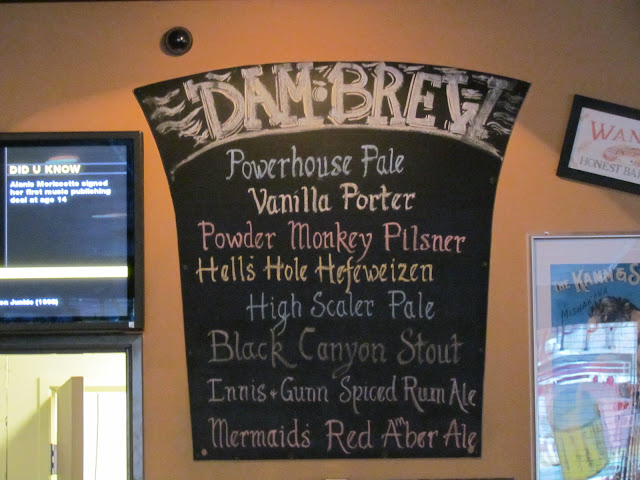 DAM·BREW
Powerhouse Pale
Vanilla Porter
Powder Monkey Pilsner
Hell's Hole Hefeweizen
High Scaler Pale
Black Canyon Stout
Innis & Gunn Spiced Rum Ale
Mermaid's Red A"ber Ale
DID U KNOW
Alanis Morissette signed
her first music publishing
deal at age 14
Junkie (1998)
WAN
HONEST BAR
THE